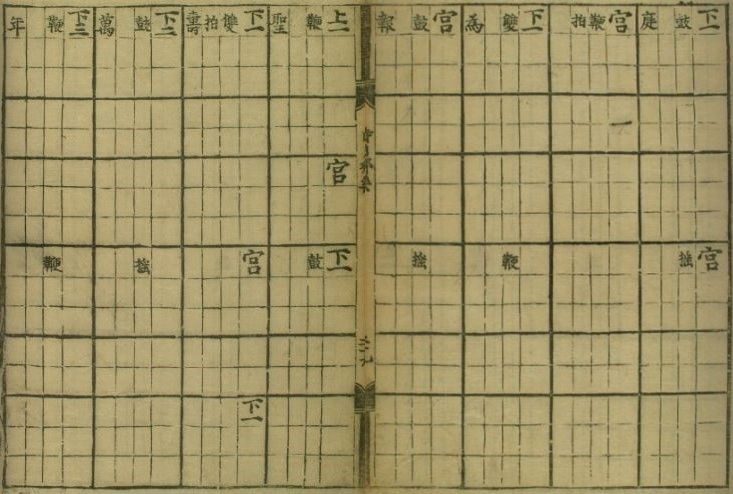 下一 宮
鼓 搖
庭
宮
鞭
拍
下一
雙 鞭
為
宮
鼓 搖
報
上一 宮 下一
鞭 鼓
聖
下一 宮 下一
雙
拍
壽
下二
鼓 搖
萬
下三
鞭 鞭
年